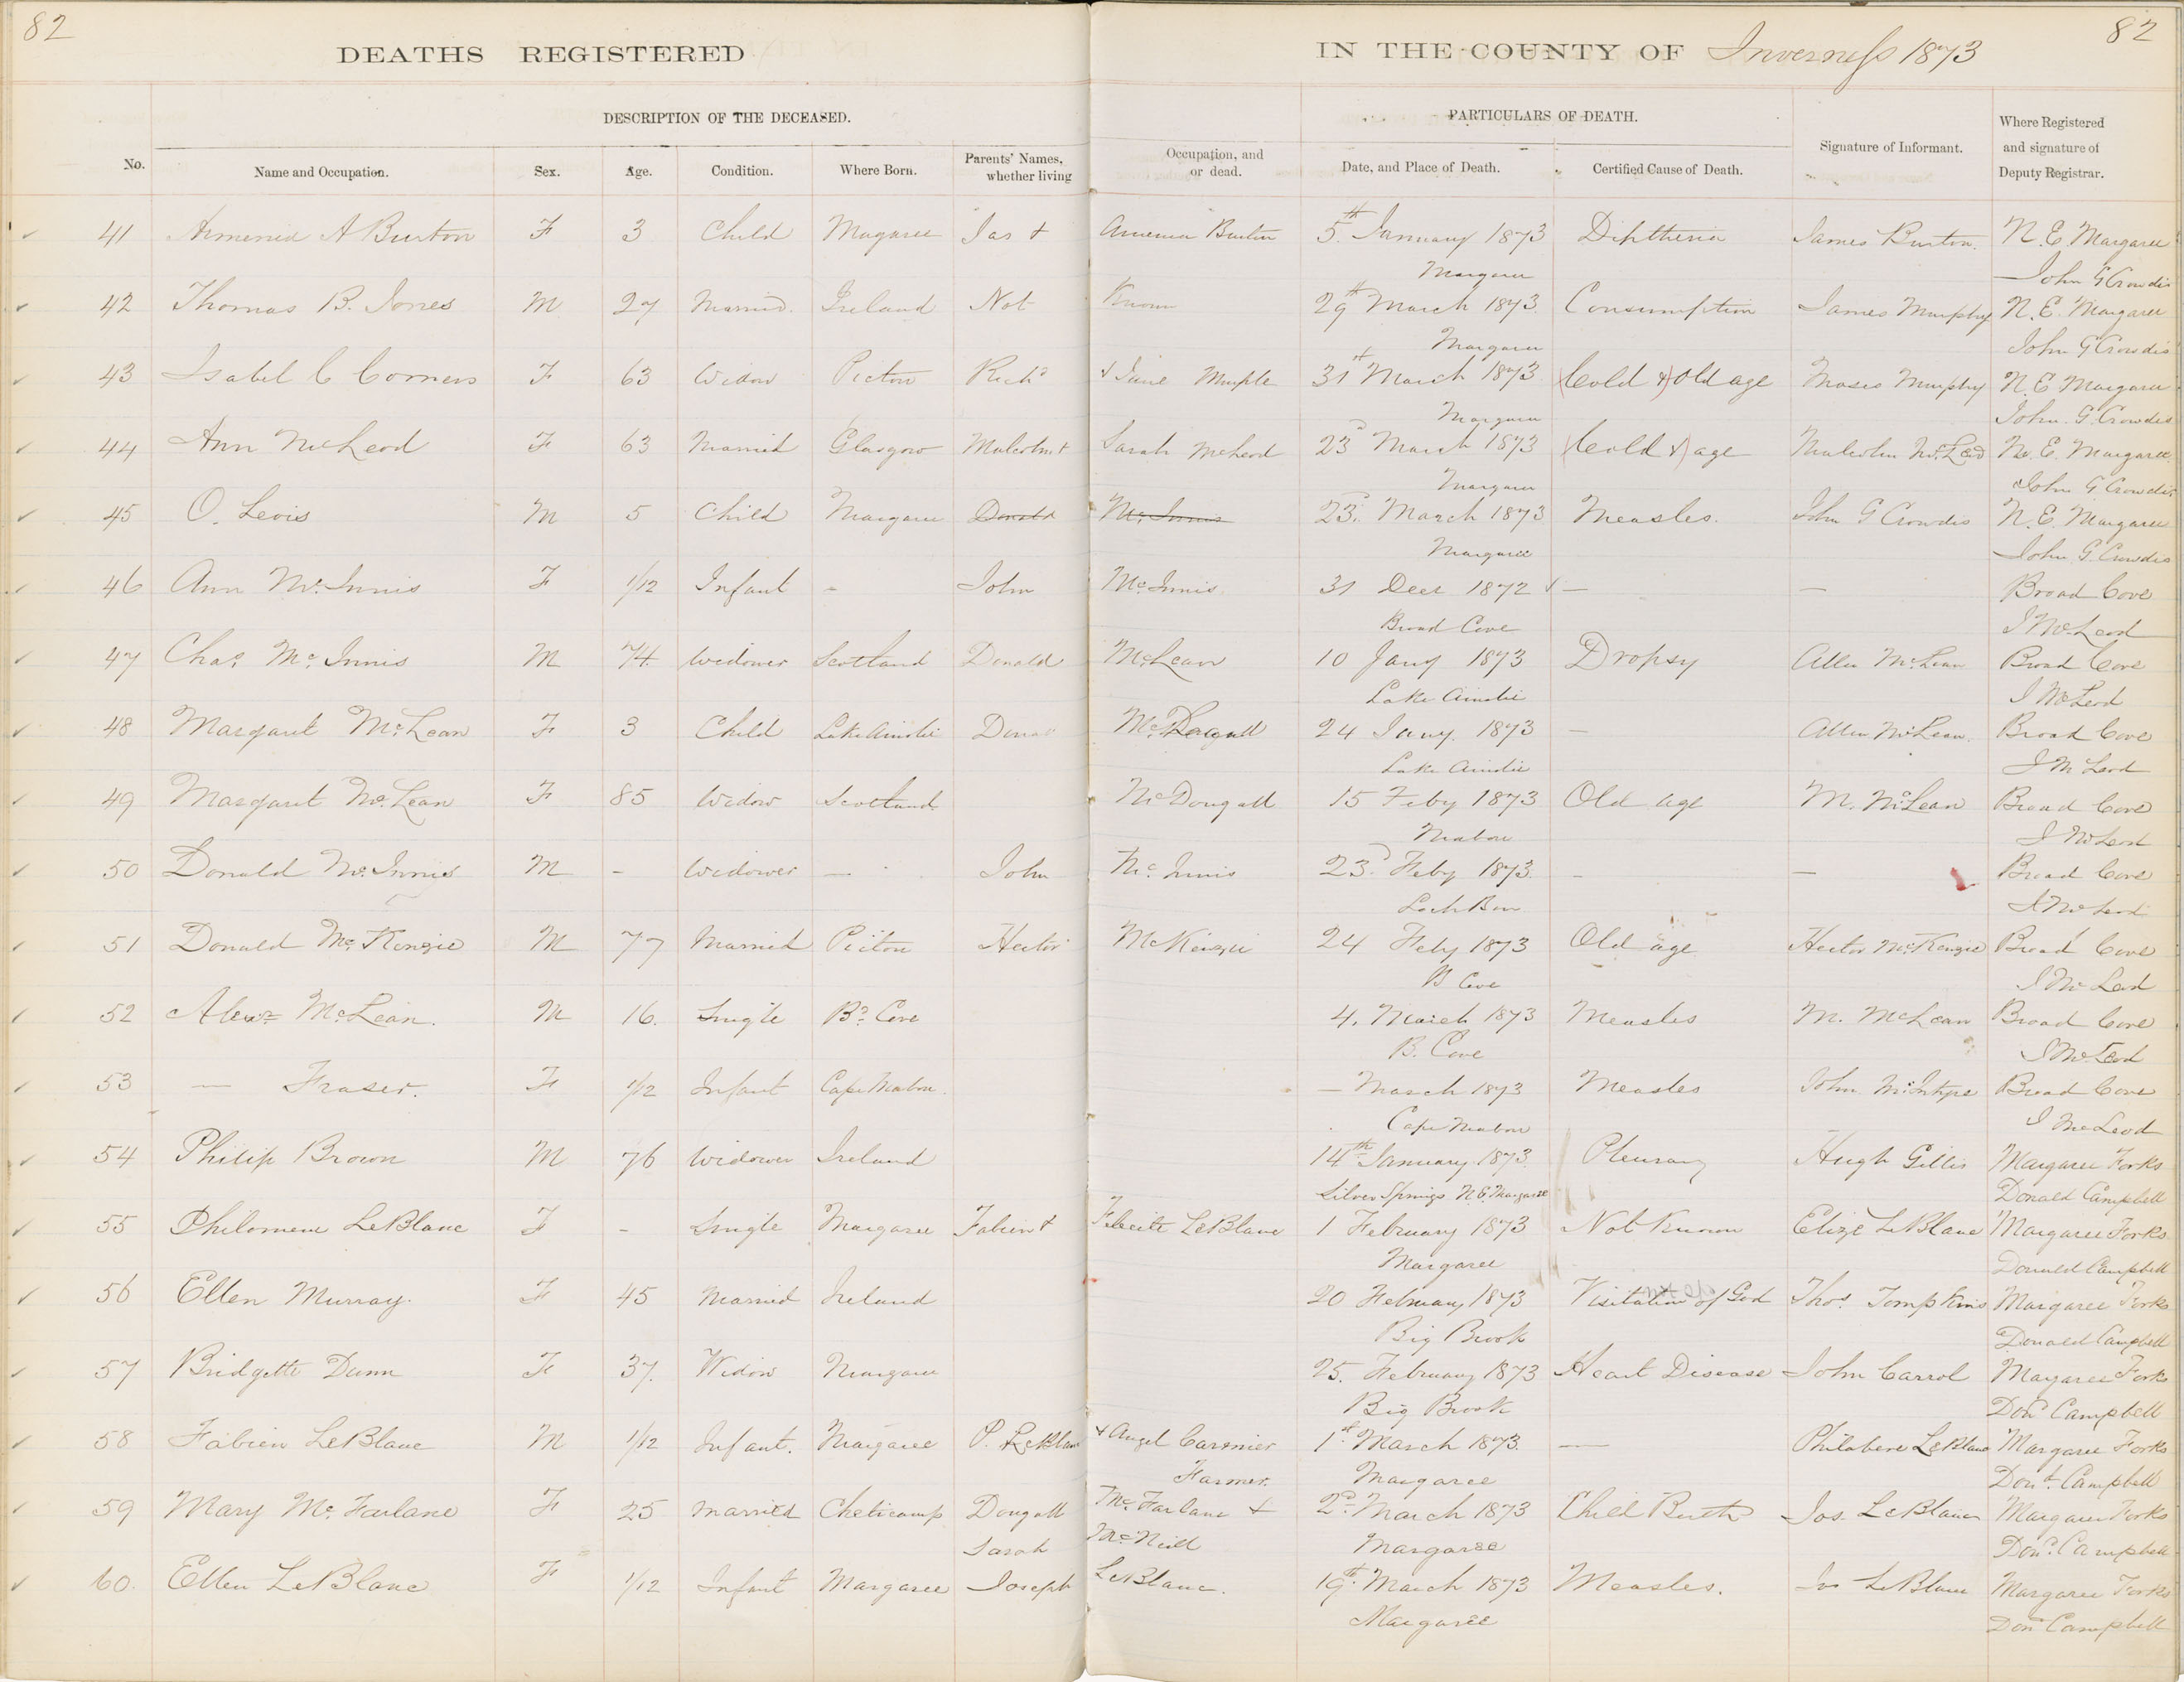 82
82
DEATHS REGISTERED IN THE COUNTY OF Inverness 1873
DESCRIPTION OF THE DECEASED. PARTICULARS OF DEATH.
No. Name and Occupation. Sex. Age. Condition. Where Born. Parents' Names, whether living Occupation, and or dead. Date, and Place of Death. Certified Cause of Death. Signature of Informant. Where Registered and signature of Deputy Registrar.
41 Armenia A Burton F 3 Child Margaree Jas & Armenia Burton 5th January 1873 Diptheria James Burton. N.E. Margaree
Margaree John G Crowdis
42 Thomas B. Jones M 27 Married. Ireland Not Known 29th March 1873. Consumption James Murphy N.E. Margaree
Margaree John G Crowdis
43 Isabel C Comers F 63 Widow Pictou Richd & Jane Murple 31st March 1873 Cold & old age Moses Murphy N.E Margaree
Margaree John. G. Crowdis
44 Ann McLeod F 63 Married Glasgow Malcolm & Sarah McLeod 23d March 1873 Cold & age Malcolm McLeod N.E. Margaree
Margaree John G Crowdis
45 O. Levis M 5 Child Margaree Donald McInnis 23d. March 1873 Measles. John G Crowdis N.E. Margaree
Margaree John G. Crowdis
46 Ann McInnis F 1/12 Infant - John McInnis 31 Decr 1872 — — Broad Cove
Broad Cove J McLeod
47 Chas. McInnis M 74. Widower Scotland Donald McLean 10 Jany 1873 Dropsy Allen McLean Broad Cove
Lake Ainslie J McLeod
48 Margaret McLean F 3 Child Lake Ainslie Donald McDougall 24 Jany. 1873 — Allen McLean. Broad Cove
Lake Ainslie J McLeod
49 Margaret McLean F 85 Widow Scotland McDougall 15 Feby 1873 Old age M. McLean Broad Cove
Mabou J McLeod
50 Donald McInnis M - Widower — John McInnis 23d Feby 1873. - — Broad Cove
Loch Ban J McLeod
51 Donald McKenzie M 77 Married Pictou Hector McKenzie 24 Feby 1873 Old age Hector McKenzie Broad Cove
B Cove J McLeod
52 Alexr McLean. M 16. Single Bd Cove 4. March 1873 Measles M. McLean Broad Cove
B. Cove J McLeod
53 — Fraser. F 1/12 Infant Cape Mabou. — March 1873 Measles John McIntyre Broad Cove
Cape Mabou J McLeod
54 Philip Brown M 76 Widower Ireland 14th January 1873. Pleurasy Hugh Gillis Margaree Forks
Silver Springs N.E. Margaree Donald Campbell
55 Philomene LeBlanc F - Single Margaree Fabien & Felecite LeBlanc 1 February 1873 Not Known Elize LeBlanc Margaree Forks
Margaree Donald Campbell
56 Ellen Murray. F 45 Married Ireland 20 February 1873 Visitation of God Thos. Tompkins Margaree Forks
Big Brook Donald Campbell
57 Bridgette Dunn F 37. Widow Margaree 25. February 1873 Heart Disease John Carrol Margaree Forks
Big Brook Dond Campbell
58 Fabien LeBlanc M 1/12 Infant. Margaree P. LeBlanc & Angel Carmier 1st March 1873. — Philabere LeBlanc Margaree Forks
Farmer. Margaree Dond Campbell
59 Mary McFarlane F 25 married Cheticamp Dougall McFarlane & 2d March 1873 Child Birth Jos. LeBlanc Margaree Forks
Sarah McNeill Margaree Dond. Campbell
60. Ellen LeBlanc F 1/12 Infant Margaree Joseph LeBlanc. 19th. March 1873 Measles. Jos LeBlanc Margaree Forks
Margaree Dond Campbell